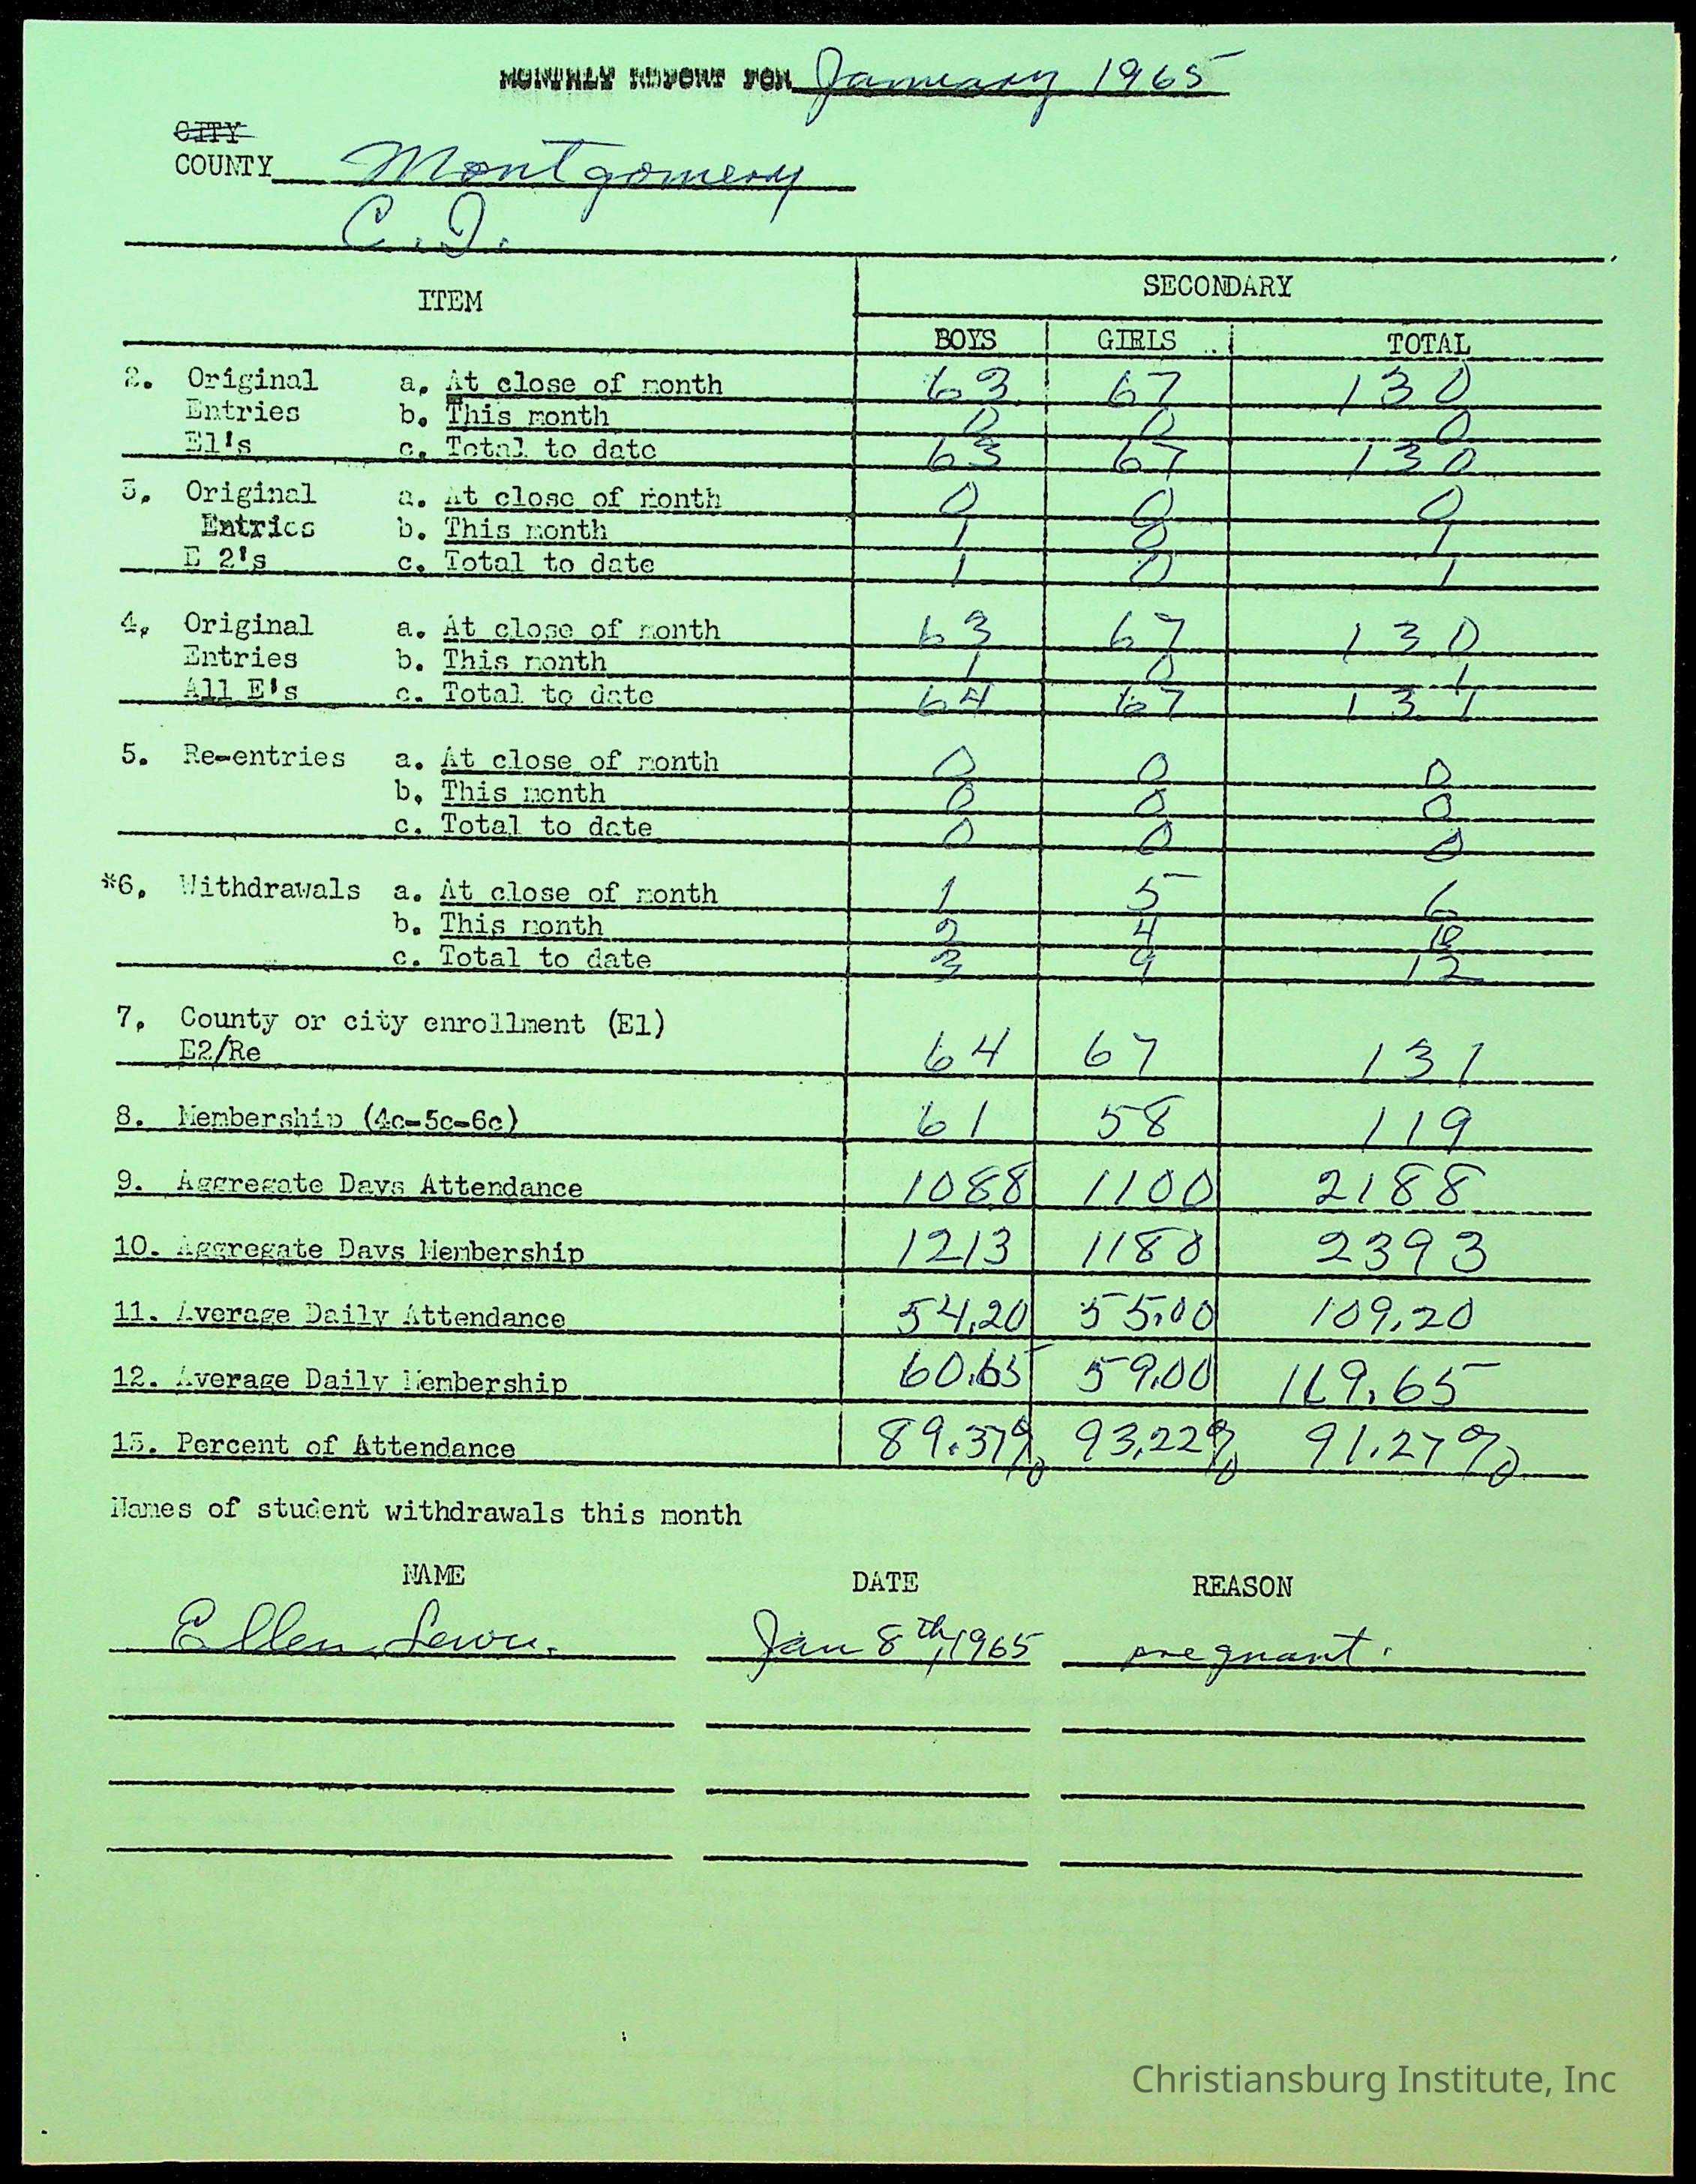 MONTHLY REPORT FOR January 1965
CITY
COUNTY Montgomery
C.I.
ITEM SECONDARY
BOYS GIRLS TOTAL
2. Original a. At close of month 63 67 130
Entries b. This month 0 0 0
El's c. Total to date 63 67 130
3. Original a. At close of month 0 0 0
Entries b. This month 1 0 1
E 2's c. Total to date 1 0 1
4. Original a. At close of month 63 67 130
Entries b. This month 1 0 1
All E's c. Total to date 64 67 131
5. Re-entries a. At close of month 0 0 0
b. This month 0 0 0
c. Total to date 0 0 0
*6. Withdrawals a. At close of month 1 5 6
b. This month 2 4
c. Total to date 3 9 12
7. County or city enrollment (E1)
E2/Re 64 67 131
8. Membership (4c-5c-6c) 61 58 119
9. Aggregate Days Attendance 1088 1100 2188
10. Aggregate Days Membership 1213 1180 2393
11. Average Daily Attendance 54.20 55.00 109.20
12. Average Daily Membership 60.65 59.00 119.65
13. Percent of Attendance 89.37% 93.22% 91.27%
Names of student withdrawals this month
NAME DATE REASON
Ellen Jan 8th, 1965 pregnant.
Christiansburg Institute, Inc